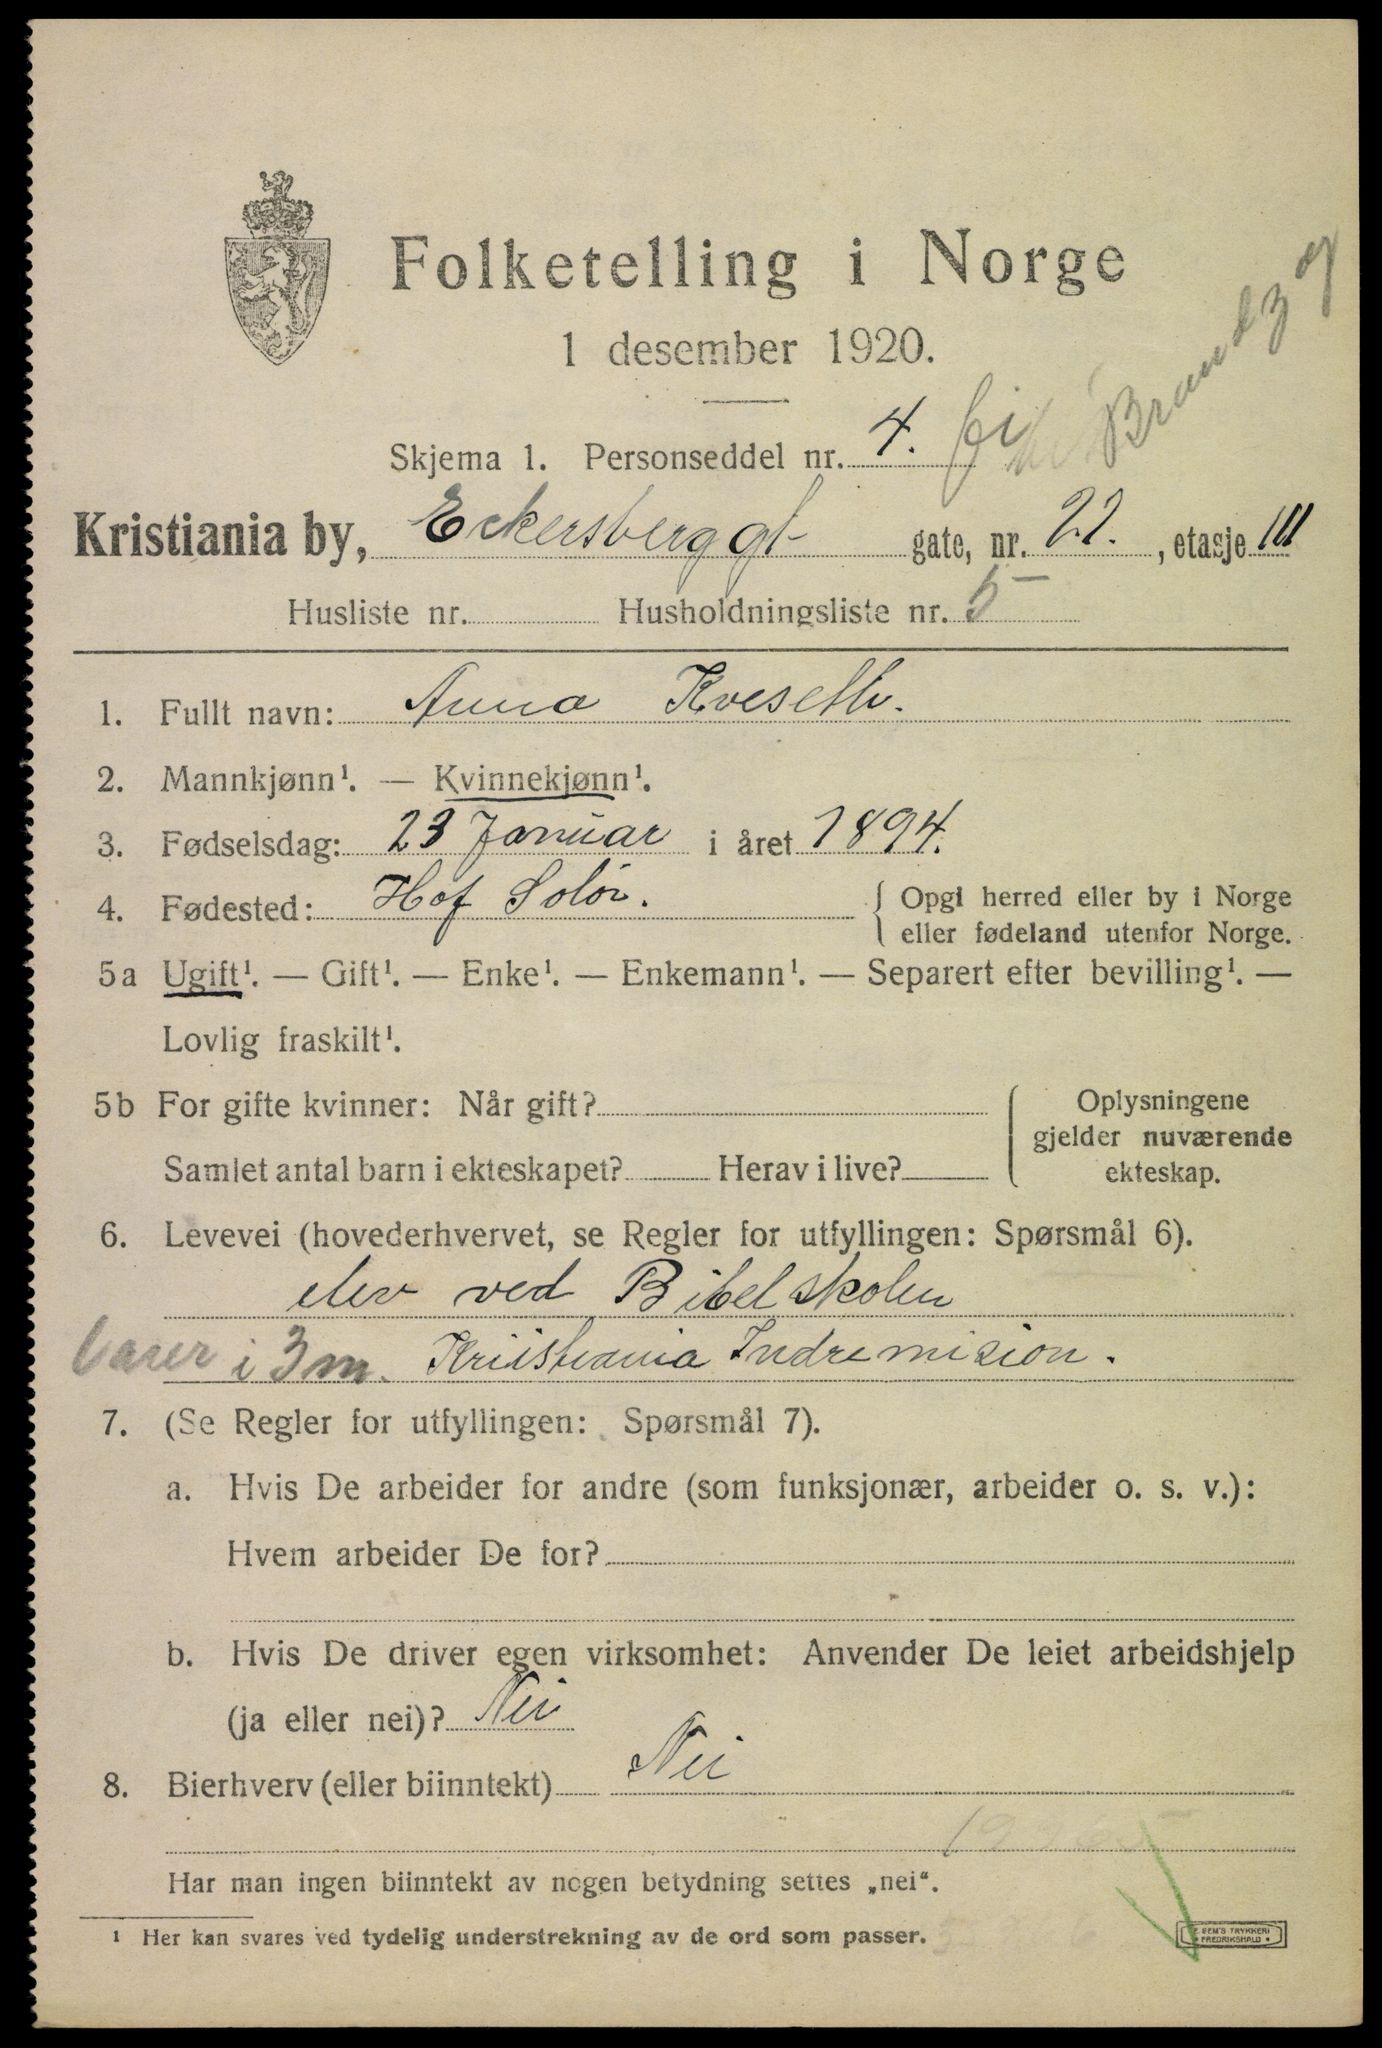 Folketelling i Norge
1 desember 1920.
Skjema 1. Personseddel nr. 4.
Brandzog
Kristiania by, Eckersberg gt gate, nr. 22. , etasje III
Husliste nr. Husholdningsliste nr. 5
1. Fullt navn: Anna Kveseth.
2. Mannkjønn¹. — Kvinnekjønn¹.
3. Fødselsdag: 23 Januar i året 1894.
4. Fødested: Hof Solør.
{ Opgi herred eller by i Norge
eller fødeland utenfor Norge.
5a Ugift¹. — Gift¹. — Enke¹. — Enkemann¹. — Separert efter bevilling¹. —
Lovlig fraskilt¹.
5b For gifte kvinner: Når gift?
Samlet antal barn i ekteskapet? Herav i live?
Oplysningene
gjelder nuværende
ekteskap.
6. Levevei (hovederhvervet, se Regler for utfyllingen: Spørsmål 6).
elev ved Bibelskolen
i 3 m. Kristiania Indremision.
7. (Se Regler for utfyllingen: Spørsmål 7).
a. Hvis De arbeider for andre (som funksjonær, arbeider o. s. v.):
Hvem arbeider De for?
b. Hvis De driver egen virksomhet: Anvender De leiet arbeidshjelp
(ja eller nei)? Nei
8. Bierhverv (eller biinntekt) Nei
Har man ingen biinntekt av nogen betydning settes „nei“.
¹ Her kan svares ved tydelig understrekning av de ord som passer.
SEM'S TRYKKERI
FREDRIKSHALD